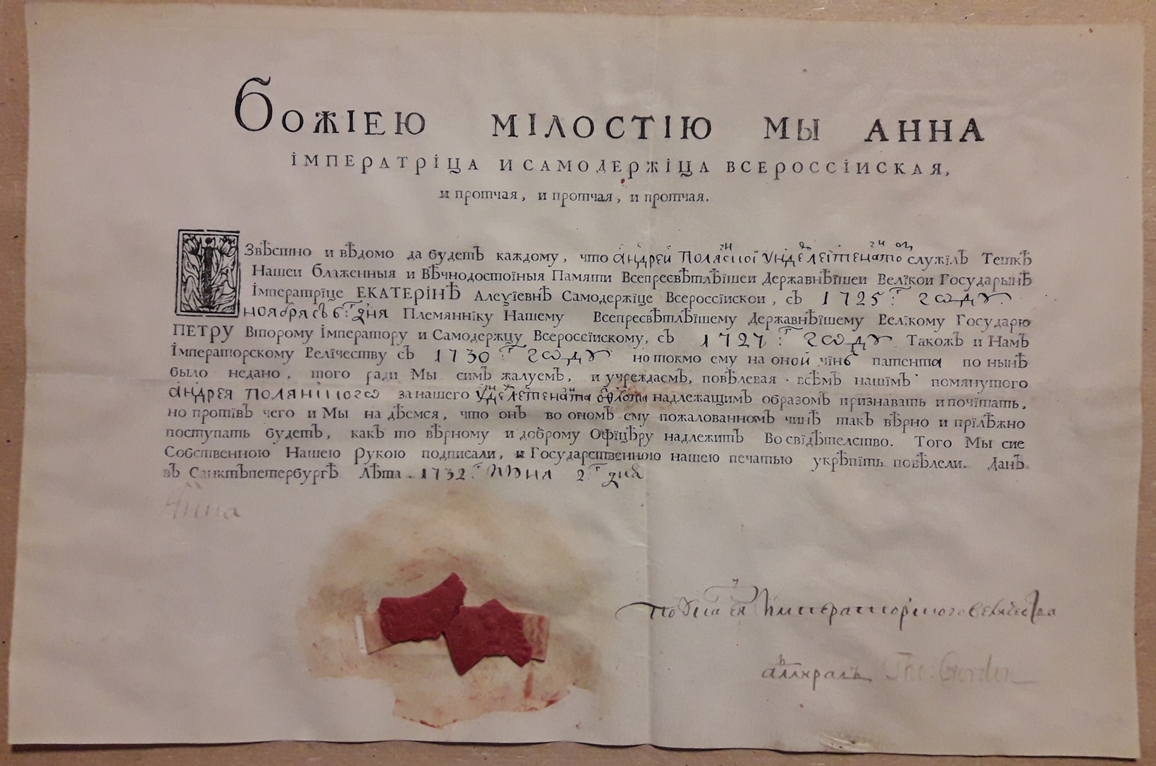 БОЖІЕЮ МІЛОСТІЮ МЫ АННА
ІМПЕРАТРІЦА И САМОДЕРЖІЦА ВСЕРОССІИСКАЯ,
и протчая, и протчая, и протчая.
ІЗвѣстно и вѣдомо да будетъ каждому, что андреи служилъ Теткѣ
Нашеи блаженныя и вѣчнодостоіныя Памяти Всепресвѣтлѣішеи Державнѣішеи Велікои Государынѣ
Імператріце ЕКАТЕРІНѢ Алеѯіевнѣ Самодержіце Всероссіискои, съ 1725 году
ноября съ 6 дня Племяннїку Нашему Всепресвѣтлѣішему Державнѣішему Велікому Государю
ПЕТРУ Второму Імператору и Самодержцу Всероссіискому, съ 1727 году Такожъ и Намъ
Імператорскому Велічеству съ 1730 году но токмо ему на оной чінъ патента по нынѣ
было недано, того ради Мы симъ жалуемъ, и учреждаемъ, повѣлевая всѣмъ нашімъ помянутого
андрея за нашего надлежащимъ образомъ признавать и почітать,
но протівъ чего и Мы надѣемся, что онъ во ономъ ему пожалованномъ чинѣ такъ вѣрно и прілѣжно
поступать будетъ, какъ то вѣрному и доброму Офіцѣру надлежитъ Во свідѣтелство. Того Мы сие
Собственною Нашею Рукою подписали, и Государственною нашею печатью укрѣпіть повѣлели. Данъ
въ Санктѣпетербургѣ Лѣта 1732 июня 2 дня
Анна
по указу ея императорского величества
адмиралъ Tho: Gordon